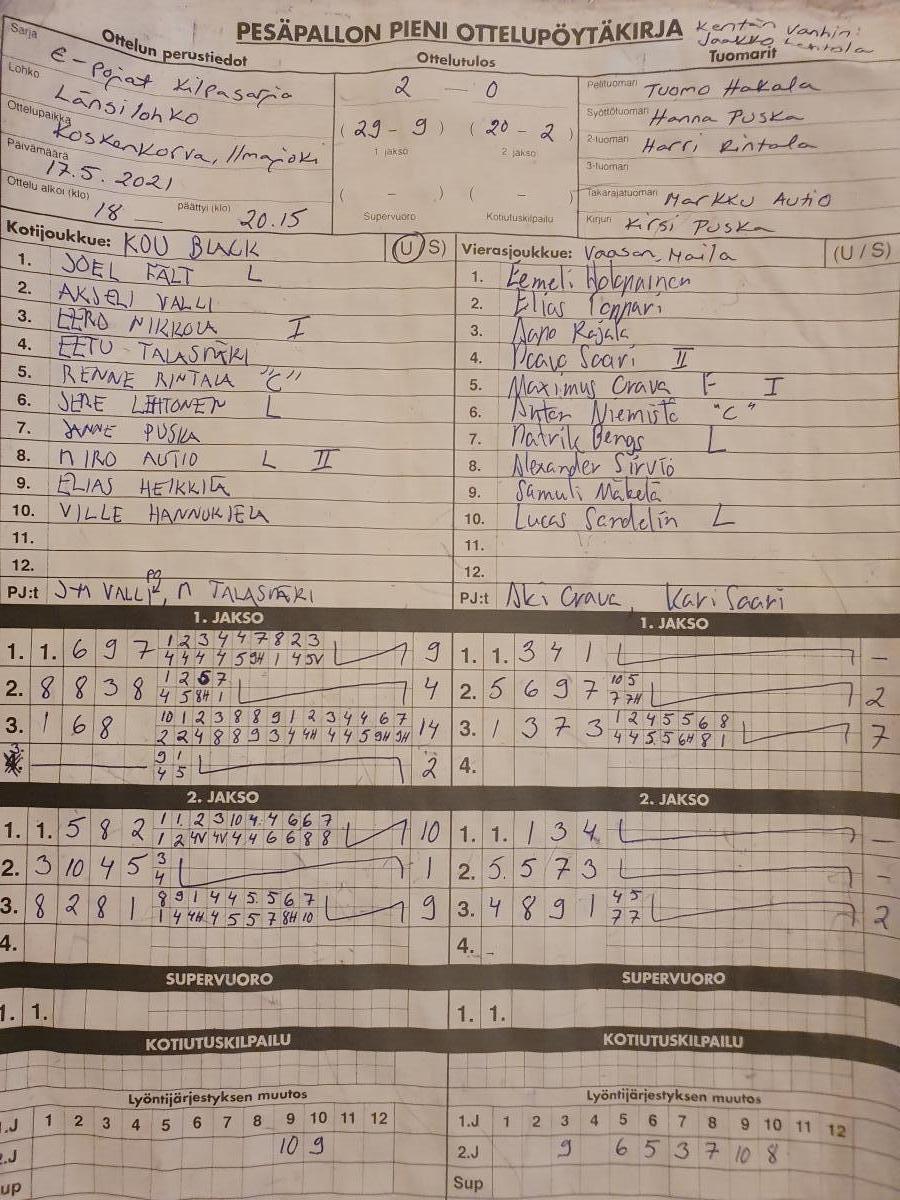 PESÄPALLON PIENI OTTELUPÖYTÄKIRJA
Kentän vanhin:
Jaakko
Ottelun perustiedot
Sarja E-pojat Kilpasarja
Lohko Länsilohko
Ottelupaikka Koskenkorva, Ilmajoki
Päivämäärä 17.5.2021
Ottelu alkoi (klo) 18 — päättyi (klo) 20.15
Ottelutulos
2 — 0
(29 - 9) (20 - 2)
1 jakso 2 jakso
( - ) ( - )
Supervuoro Kotiutuskilpailu
Tuomarit
Pelituomari Tuomo Hakala
Syöttötuomari Hanna Puska
2-tuomari Harri Rintala
3-tuomari
Takarajatuomari Markku Autio
Kirjuri Kirsi Puska
Kotijoukkue: KOU BLACK (U/S)
1. JOEL FÄLT L
2. AKSELI VALLI
3. EERO NIKKOLA I
4. EETU TALASMÄKI
5. RENNE RINTALA "C"
6. JERE LEHTONEN L
7. JANNE PUSKA
8. MIRO AUTIO L II
9. ELIAS HEIKKILÄ
10. VILLE HANNUKSELA
11.
12.
PJ:t J-M VALLI, M TALASMÄKI
Vierasjoukkue: Vaasan Maila (U/S)
1. Eemeli Holopainen
2. Elias Toppari
3. Aapo Rajala
4. Paavo Saari II
5. Maximus Crava F I
6. Anton Niemistö "C"
7. Patrik Bengs L
8. Alexander Sirviö
9. Samuli Mäkelä
10. Lucas Sandelin L
11.
12.
PJ:t Aki Crava, Kari Saari
1. JAKSO
1. 1. 6 9 7 1 2 3 4 4 7 8 2 3 9
4 4 4 4 5 9H 1 4 5V
2. 8 8 3 8 1 2 5 7 4
4 5 8H 1
3. 1 6 8 10 1 2 3 8 8 9 1 2 3 4 4 6 7 14
2 2 4 8 8 9 3 4 4H 4 4 5 9H 9H
3. 9 1 2
4 5
1. JAKSO
1. 1. 3 4 1 —
2. 5 6 9 7 10 5 2
7 7H
3. 1 3 7 3 1 2 4 5 5 6 8 7
4 4 5 5 6H 8 1
4.
2. JAKSO
1. 1. 5 8 2 1 1. 2 3 10 4 4 6 6 7 10
1 2 4V 4V 4 4 6 6 8 8
2. 3 10 4 5 3 1
4
3. 8 2 8 1 8 9 1 4 4 5 5 6 7 9
1 4 4H 4 5 5 7 8H 10
4.
2. JAKSO
1. 1. 1 3 4 —
2. 5. 5 7 3 —
3. 4 8 9 1 4 5 2
7 7
4.
SUPERVUORO
1. 1.
SUPERVUORO
1. 1.
KOTIUTUSKILPAILU
KOTIUTUSKILPAILU
Lyöntijärjestyksen muutos
.J 1 2 3 4 5 6 7 8 9 10 11 12
2.J 10 9
up
Lyöntijärjestyksen muutos
1.J 1 2 3 4 5 6 7 8 9 10 11 12
2.J 9 6 5 3 7 10 8
Sup